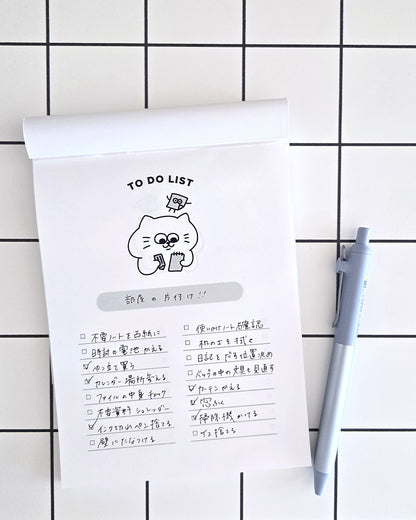 TO DO LIST
部屋の片付け!!
不要ノートを古紙に
時計の電池かえる
ペン立て買う
カレンダー場所変える
ファイルの中身チェック
不要資料シュレッダー
インク切れペン捨てる
壁にたなつける
使いかけノート確認
机の上を拭く
日記をだす位置決め
バッグの中の文具も見直す
カーテンかえる
窓ふく
掃除機かける
ゴミ捨てる